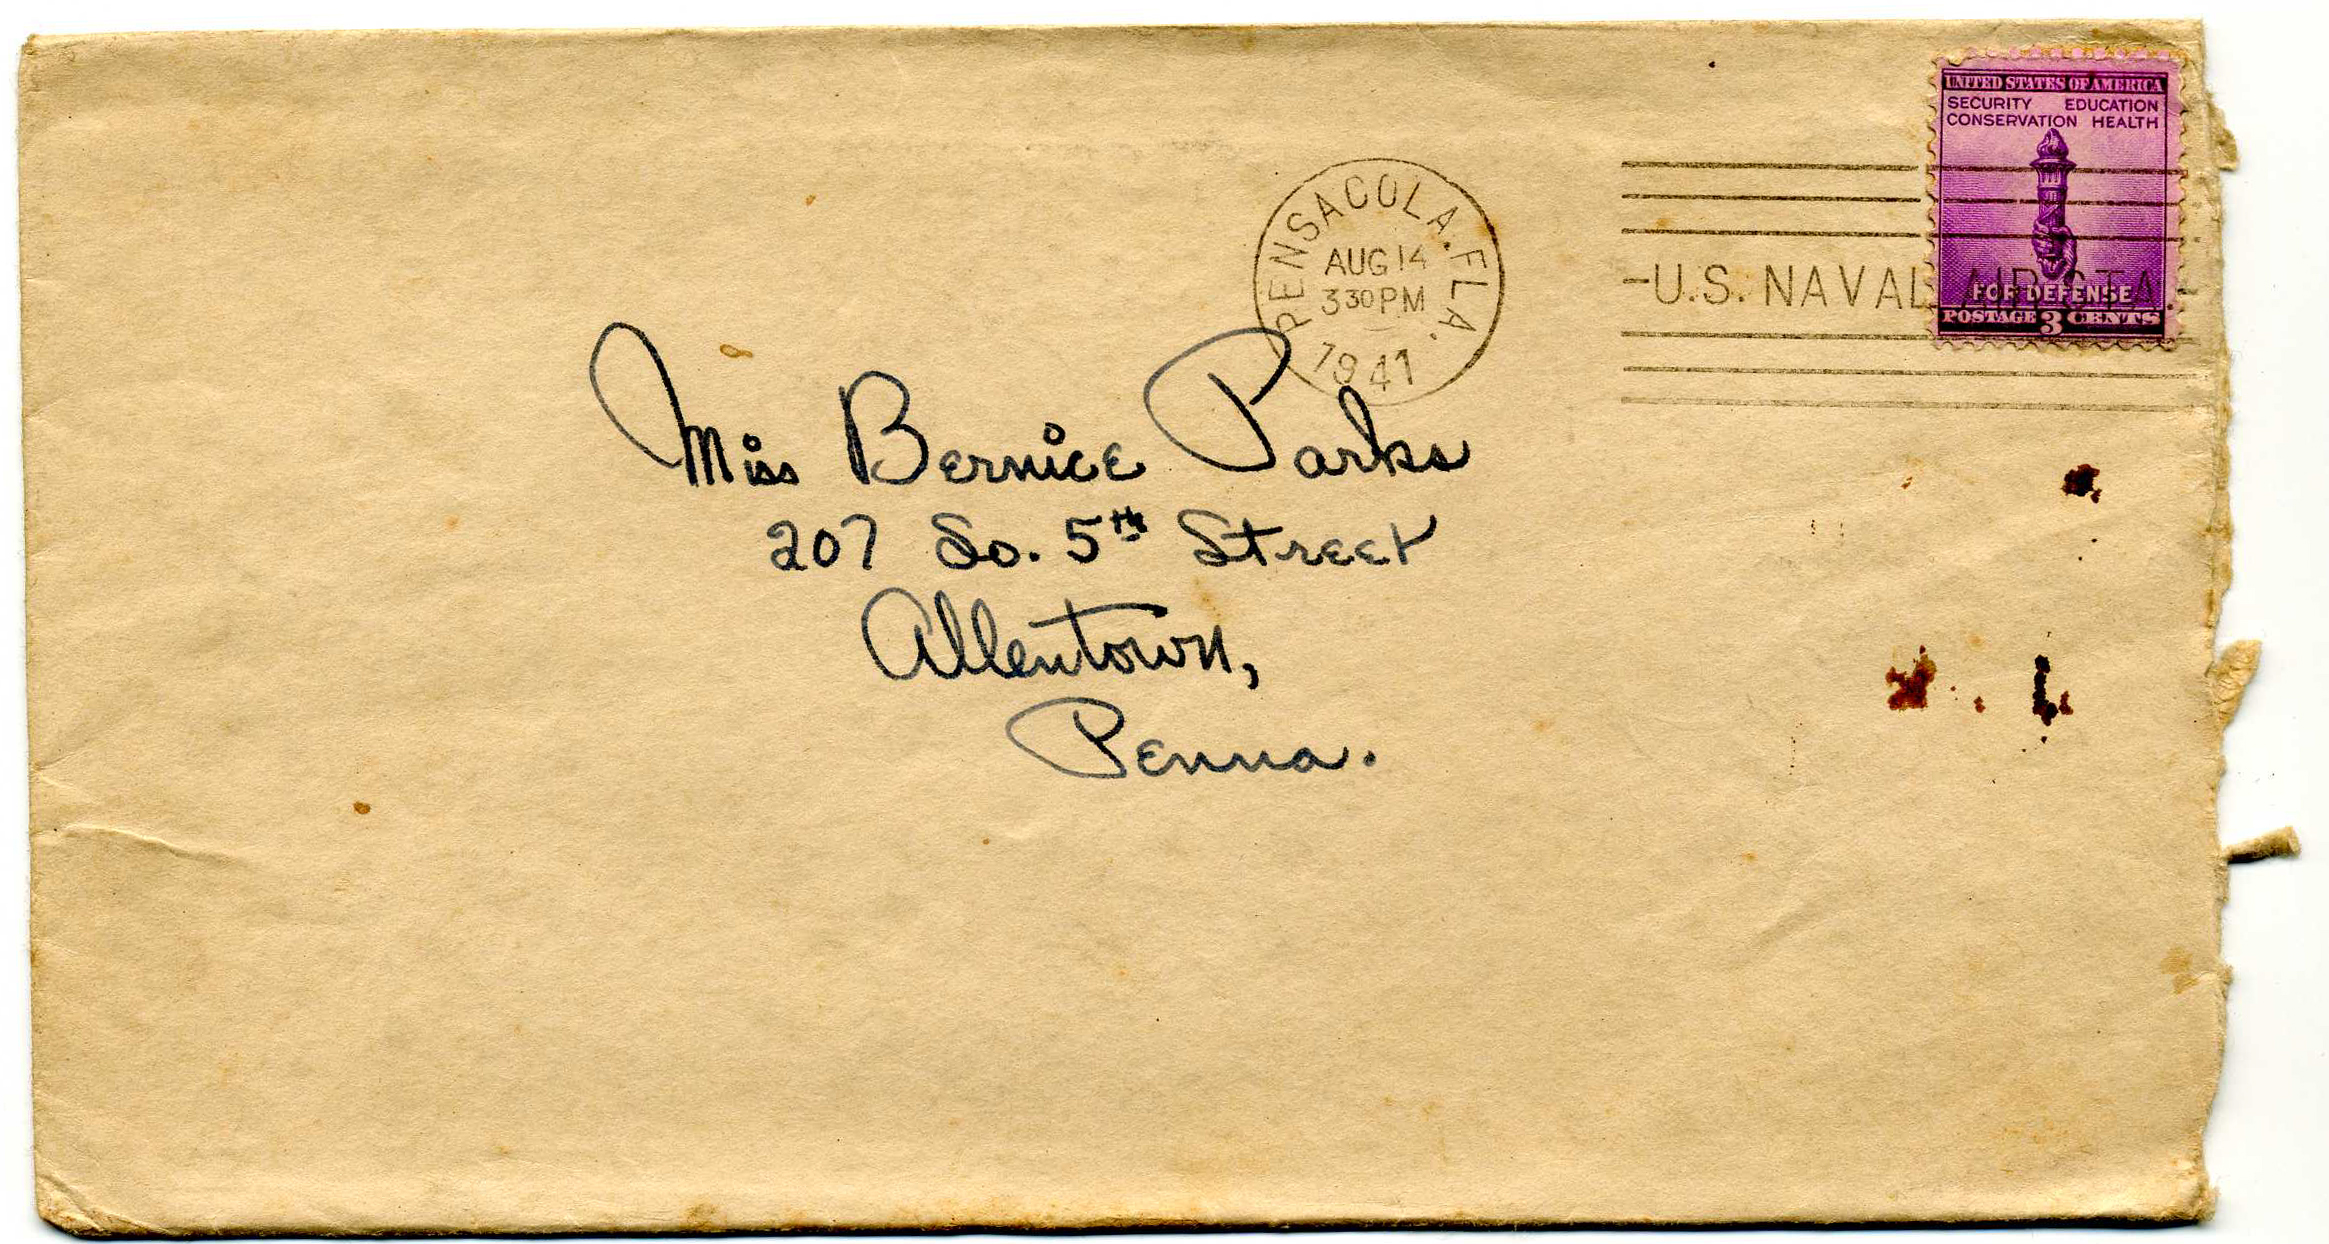 UNITED STATES OF AMERICA
SECURITY EDUCATION
CONSERVATION HEALTH
FOR DEFENSE
POSTAGE 3 CENTS
PENSACOLA, FLA.
AUG 14
3 30 PM
1941
-U.S. NAVAL AIR STA.-
Miss Bernice Parks
207 So. 5th Street
Allentown,
Penna.